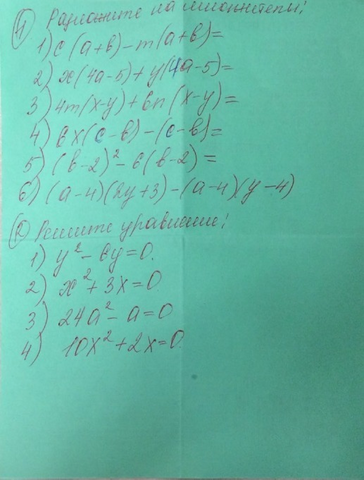 ① Разложите на множители:
1) c(a+b)-m(a+b)=
2) x(4a-5)+y(4a-5)=
3) 4m(x-y)+6n(x-y)=
4) 6x(c-b)-(c-b)=
5) (b-2)²-6(b-2)=
6) (a-4)(2y+3)-(a-4)(y-4)
② Решите уравнение:
1) y²-6y=0.
2) x²+3x=0
3) 24a²-a=0
4) 10x²+2x=0.